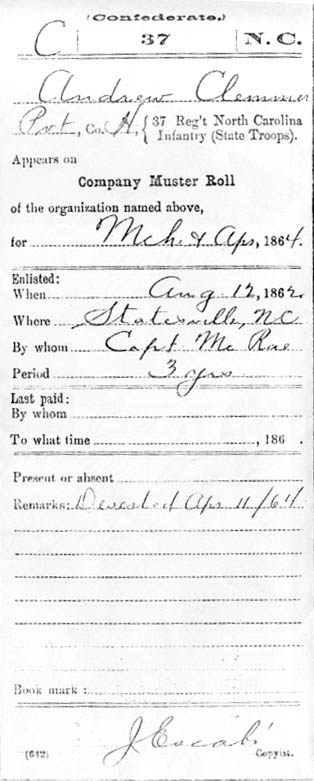 (Confederate.)
C 37 N.C.
Andrew Clemmer
Pvt, Co. H, { 37 Reg't North Carolina
Infantry (State Troops).
Appears on
Company Muster Roll
of the organization named above,
for Mch. & Apr, 1864.
Enlisted:
When Aug 12, 1862.
Where Statesville, NC
By whom Capt McRae
Period 3 yrs
Last paid:
By whom
To what time , 186 .
Present or absent
Remarks: Deserted Apr 11/64
Book mark :
(642) Copyist.